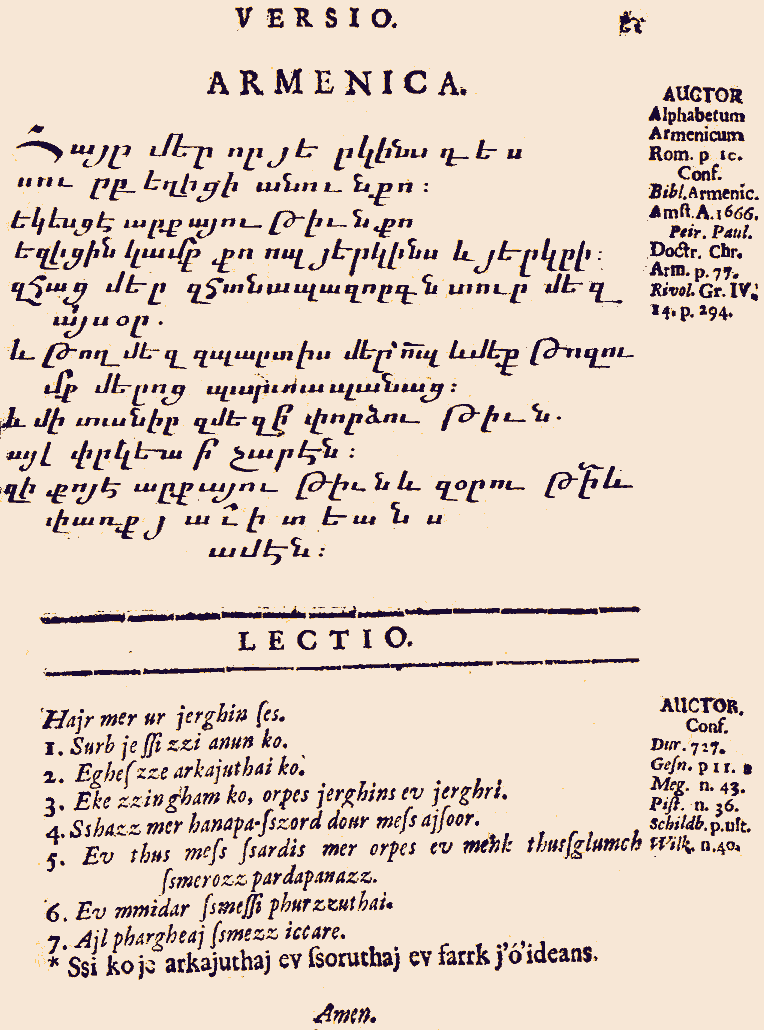 VERSIO.
ARMENICA.
Հայր մեր որ յե րկինս դ ե ս
սու րբ եղիցի անու ն քո :
եկեսցէ արք այու թիւն քո
եղիցին կամք քո որպ յերկինս և յերկրի :
զհաց մեր զհանապազորդ ն տուր մեզ
այսօր .
և թող մեզ զպարտիս մեր որպ և մեք թողու
մք մերոց պարտապանաց :
և մի տանիր զմեզ ի փորձու թիւն .
այլ փրկեա ի չարէն :
զի քոյէ արքայու թիւն և զօրու թի և
փառք յ ա ւ ի տ ե ա ն ս
ամէն :
AUCTOR
Alphabetum
Armenicum
Rom. p 1c.
Conf.
Bibl. Armenic.
Amſt. A. 1666.
Petr. Paul.
Doctr. Chr.
Arm. p. 77.
Rivol. Gr. IV.
14. p. 294.
LECTIO.
Hajr mer ur jerghin ſes.
1. Surb je ſſi zzi anun ko.
2. Egheſ zze arkajuthai ko.
3. Eke zzingham ko, orpes jerghins ev jerghri.
4. Sshazz mer hanapa-ſszord dour meſs ajſoor.
5. Ev thus meſs ſsardis mer orpes ev menk thusſglumch
ſsmerozz pardapanazz.
6. Ev mmidar ſsmeſſi phurzzuthai.
7. Ajl phargheaj ſsmezz iccare.
* Ssi ko je arkajuthaj ev ſsoruthaj ev farrk j'ó'ideans.
Amen.
AUCTOR.
Conf.
Dur. 727.
Geſn. p 11.
Meg. n. 43.
Piſt. n. 36.
Schildb. p. ult.
Wilk. n. 40.